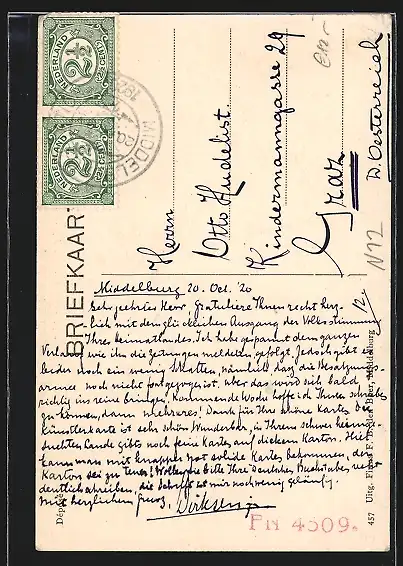 NEDERLAND 2½ CENT
NEDERLAND 2½ CENT
MIDDEL
BRIEFKAART
Herrn
Otto Hudelist.
Kindermanngasse 29
Graz
D. Oesterreich
N 72
12.-
Middelburg 20. Oct. '20
Sehr geehrter Herr, gratuliere Ihnen recht herz-
lich mit dem glücklichen Ausgang der Volksstimmung
Ihres Heimatlandes. Ich habe gespannt dem ganzen
Verlauf wie ihn die Zeitungen meldeten gefolgt. Jedoch gibt es
leider noch ein wenig Schatten, nämlich dasz die Besatzungs-
armee noch nicht fortgezogen ist. aber das wird sich bald
richtig ins reine bringen. Kommende Woche hoffe ich Ihnen schreiben
zu können, dann mehreres! Dank für Ihre schöne Karte. Die
Künstlerkarte ist sehr schön. Wunderbar, in Ihrem schwer heimge-
suchten Lande gibts noch feine Karten auf dickem Karton. Hier
kann man mit knapper Not solide Karten bekommen, der
Karton sei zu teuer! Wollen Sie bitte Ihre deutschen Buchstaben
deutlich schreiben, die Schrift ist mir noch wenig geläufig.
Mit herzlichem Gruss,
Dirksen jr
PN 4509.
Dép
457 Uitg. Firma F. B. den Boer, Middelburg